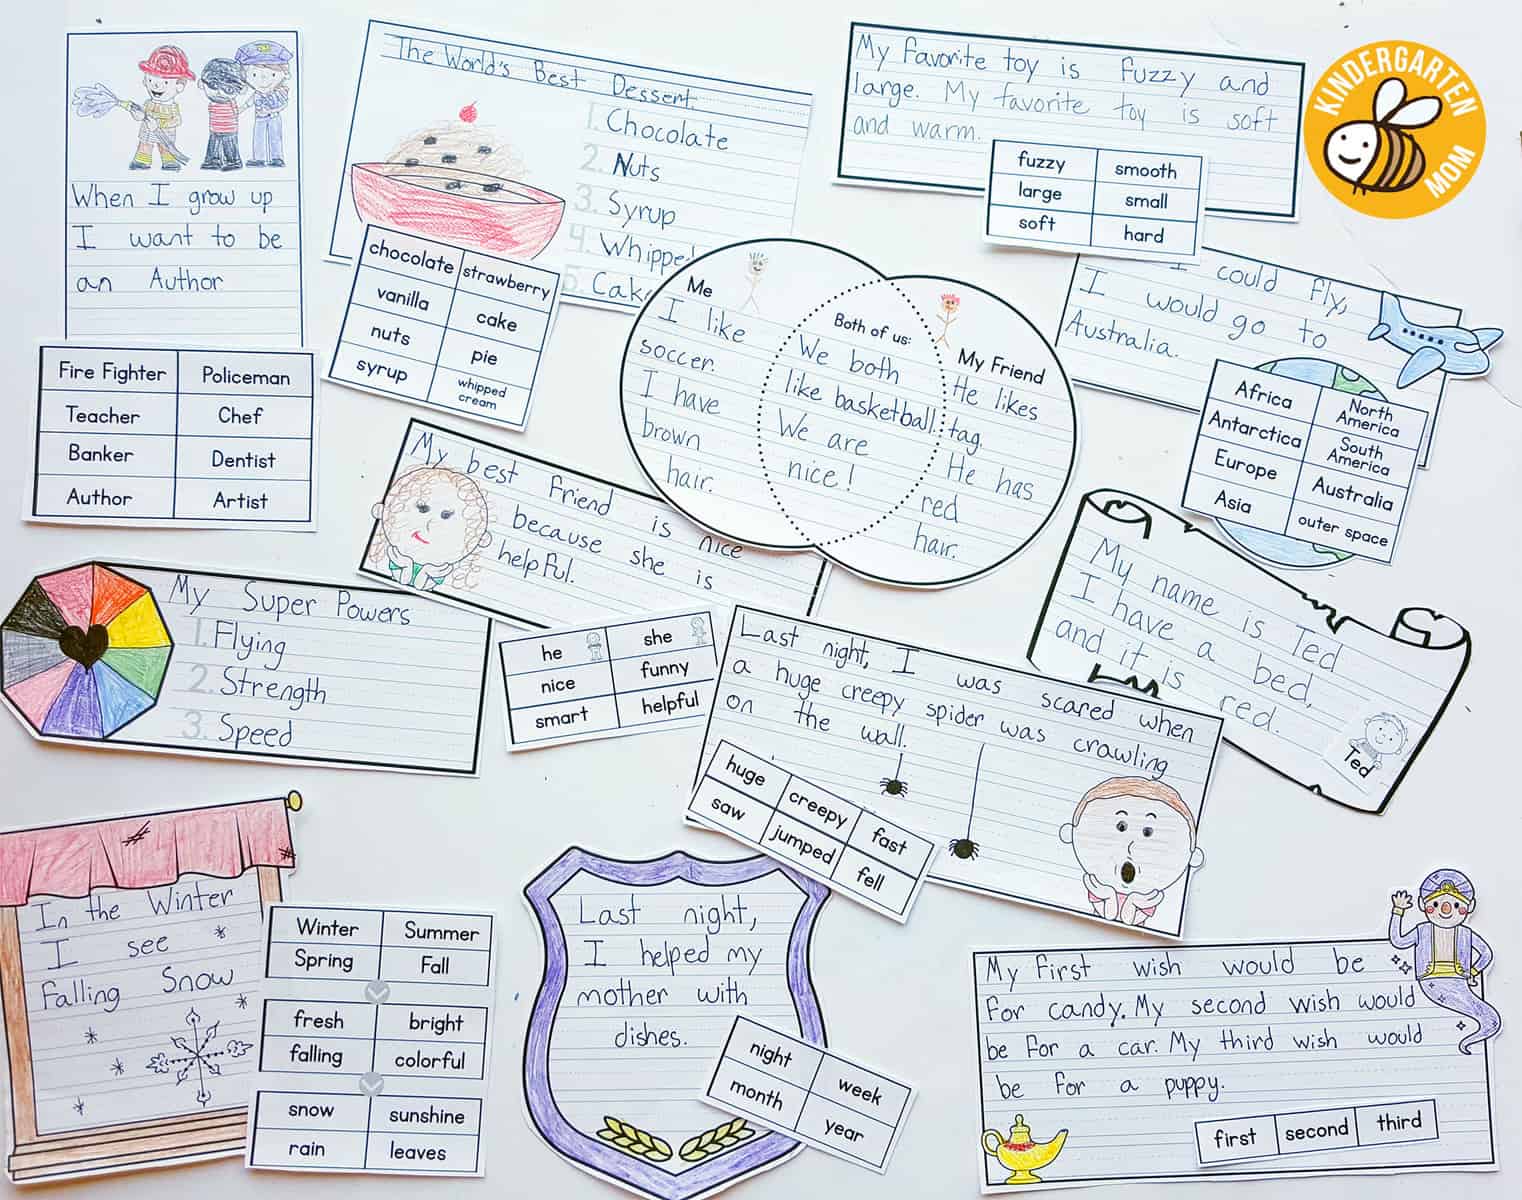 When I grow up
I want to be
an Author
Fire Fighter Policeman
Teacher Chef
Banker Dentist
Author Artist
The World's Best Dessert
1. Chocolate
2. Nuts
3. Syrup
4. Whipped
5. Cake
chocolate strawberry
vanilla cake
nuts pie
syrup whipped cream
My favorite toy is fuzzy and
large. My favorite toy is soft
and warm.
fuzzy smooth
large small
soft hard
KINDERGARTEN
MOM
Me
I like
soccer.
I have
brown
hair.
Both of us:
We both
like basketball.
We are
nice!
My Friend
He likes
tag.
He has
red
hair.
I could fly,
I would go to
Australia.
Africa North America
Antarctica South America
Europe Australia
Asia outer space
My best friend is nice
because she is
helpful.
he she
nice funny
smart helpful
My Super Powers
1. Flying
2. Strength
3. Speed
My name is Ted
I have a bed,
and it is red.
Ted
Last night, I was scared when
a huge creepy spider was crawling
on the wall.
huge creepy fast
saw jumped fell
In the Winter
I see
falling Snow
Winter Summer
Spring Fall
fresh bright
falling colorful
snow sunshine
rain leaves
Last night,
I helped my
mother with
dishes.
night week
month year
My first wish would be
for candy. My second wish would
be for a car. My third wish would
be for a puppy.
first second third